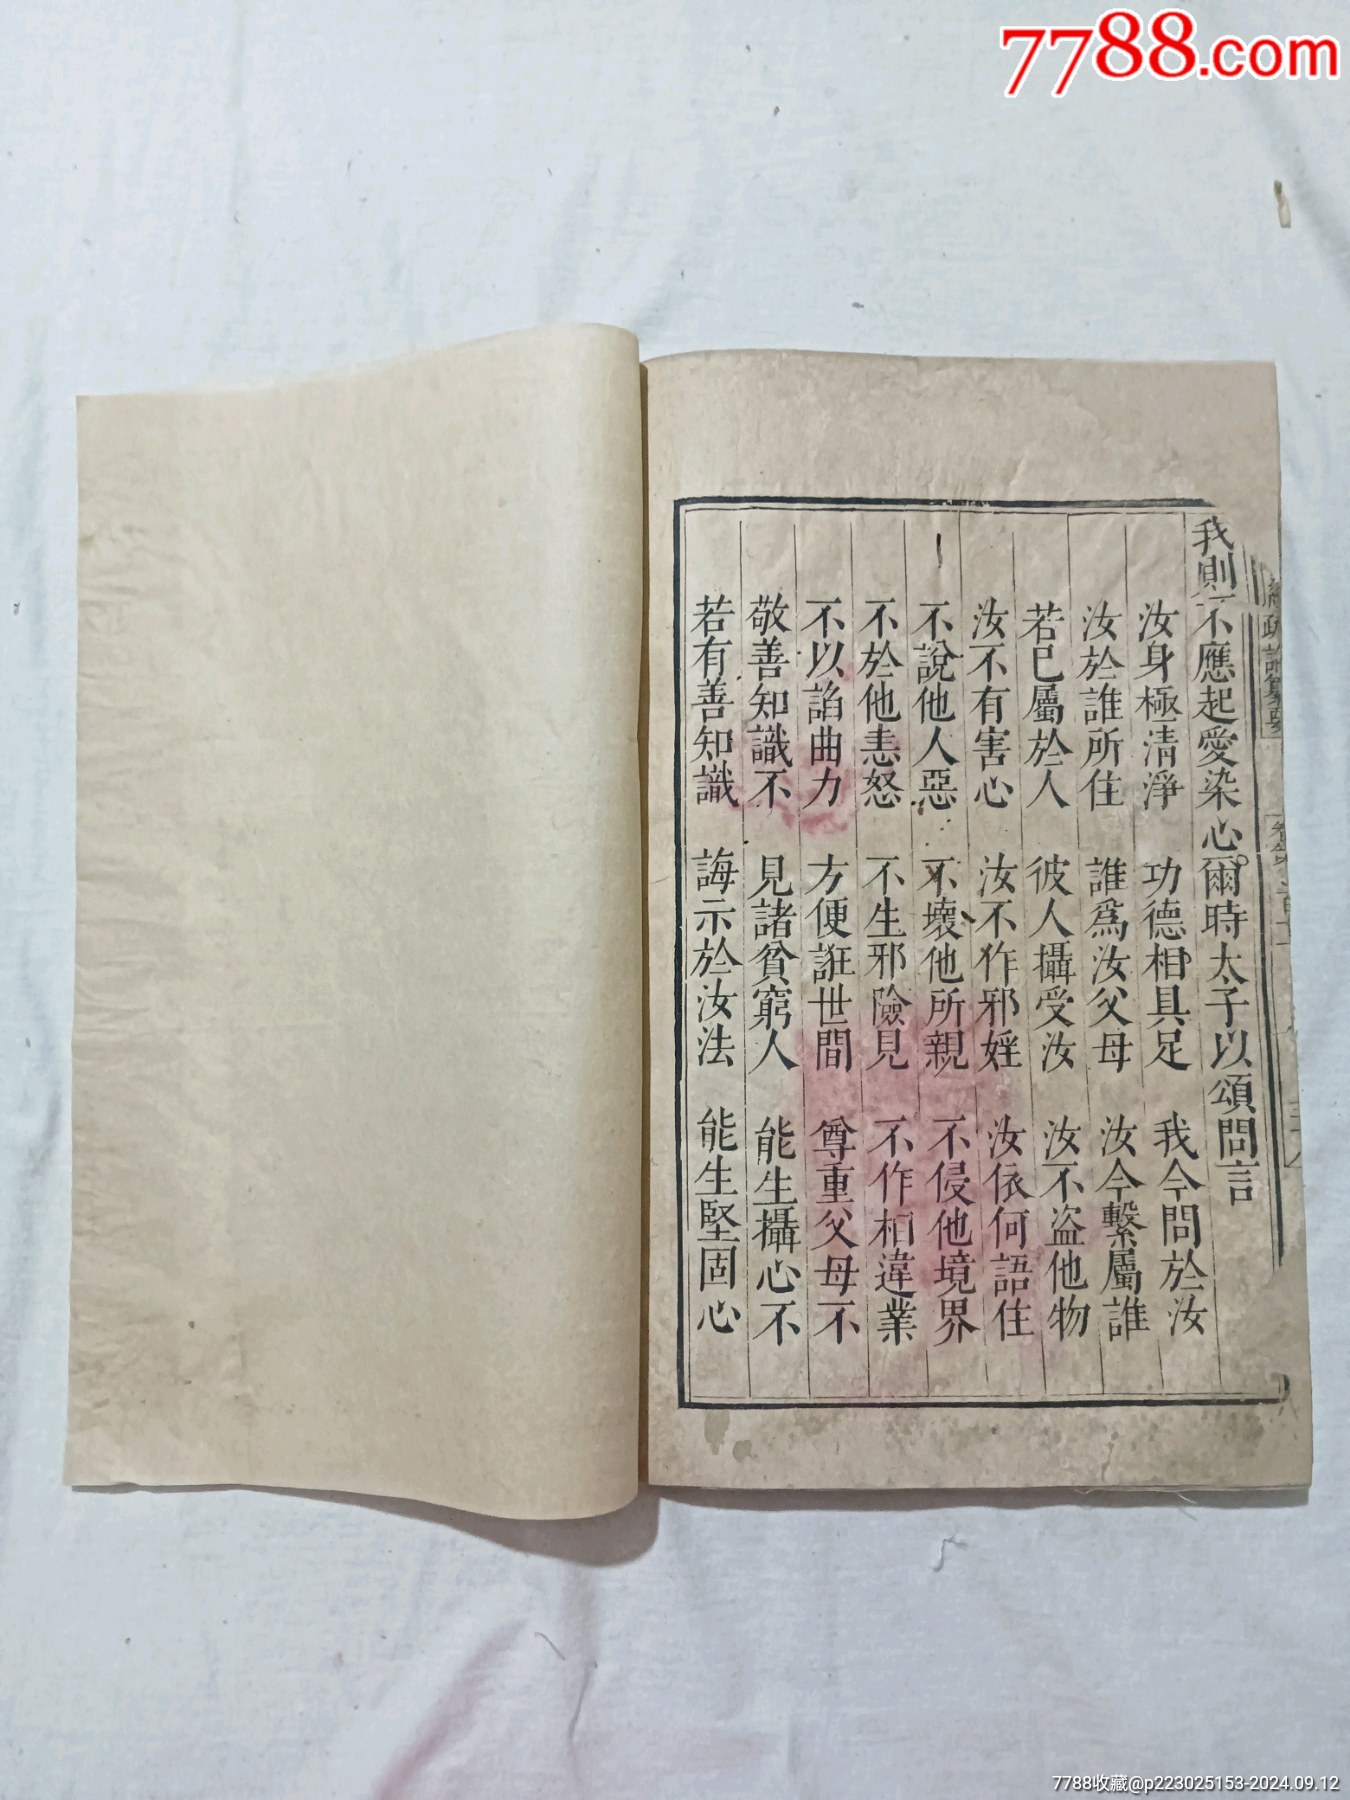 7788.com
我則不應起愛染心爾時太子以頌問言
汝身極清淨 功德相具足 我今問於汝
汝於誰所住 誰爲汝父母 汝今繫屬誰
若已屬於人 彼人攝受汝 汝不盜他物
汝不有害心 汝不作邪婬 汝依何語住
不說他人惡 不壞他所親 不侵他境界
不於他恚怒 不生邪險見 不作相違業
不以諂曲力 方便誑世間 尊重父母不
敬善知識不 見諸貧窮人 能生攝心不
若有善知識 誨示於汝法 能生堅固心
7788收藏@p223025153-2024.09.12